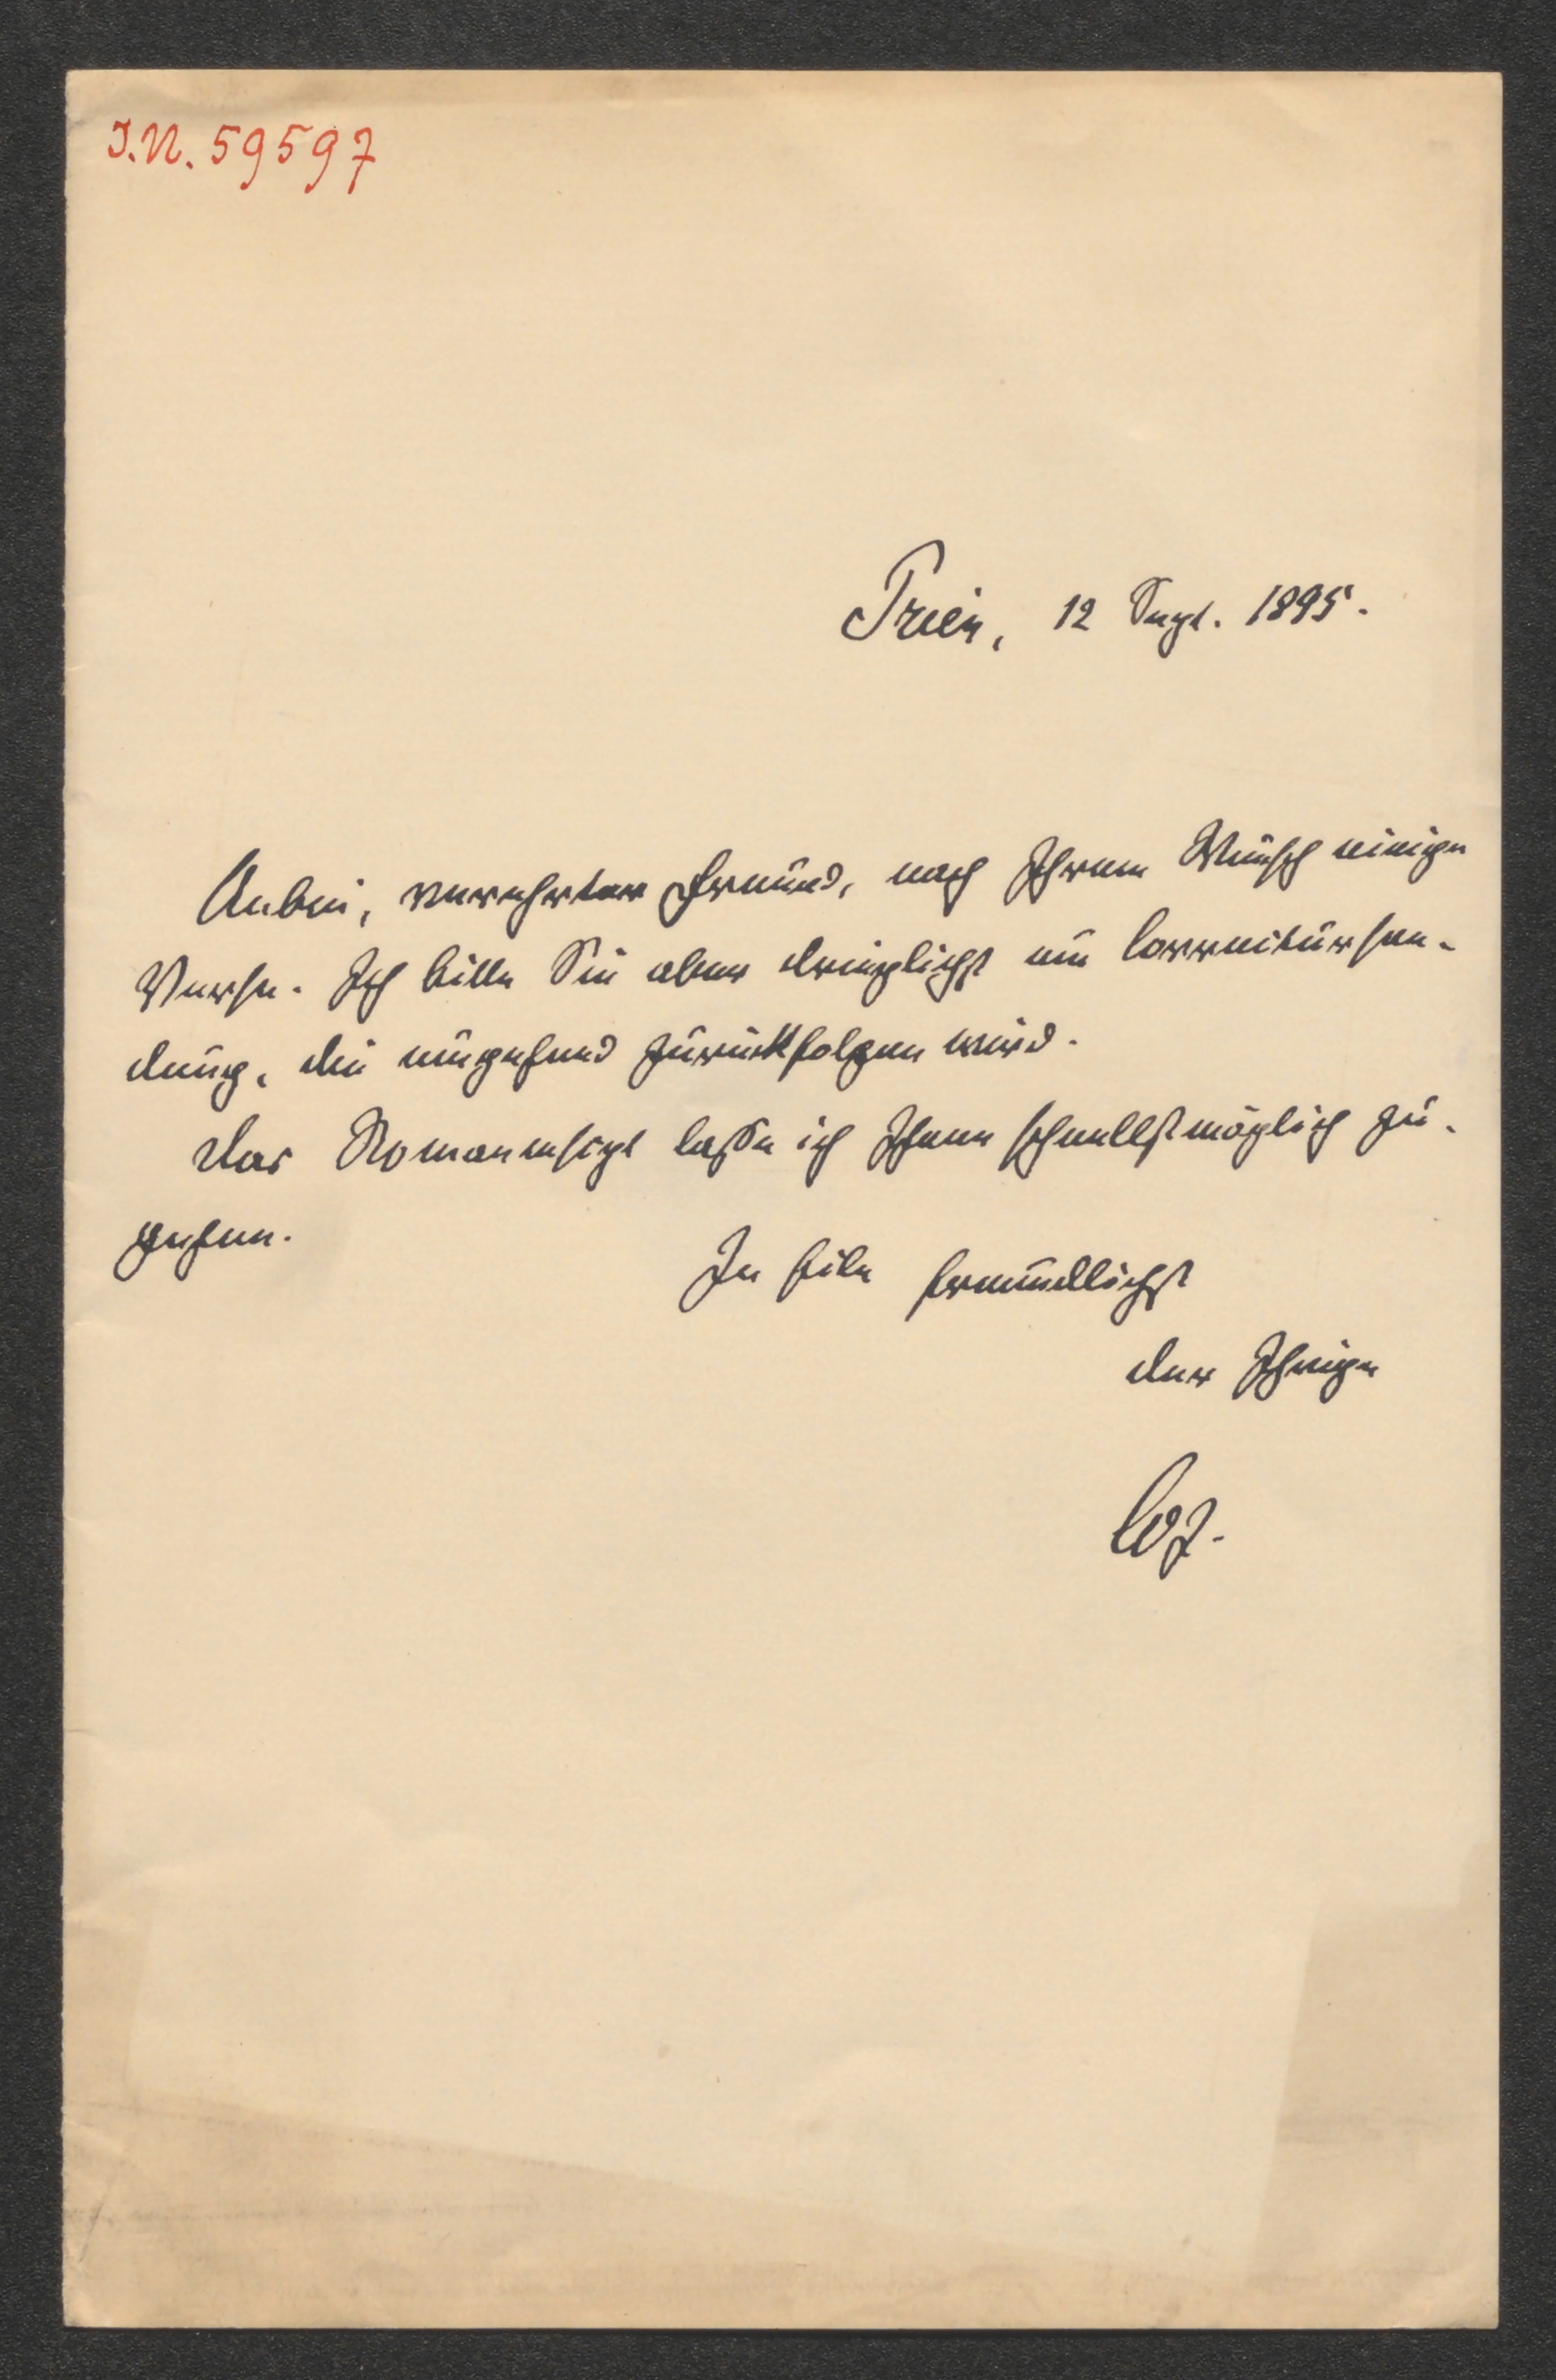 I.N. 59597
Prien, 12 Sept. 1895.
Anbei, verehrter Freund, nach Ihrem Wunsch einige
Verse. Ich bitte Sie aber dringlichst um Correctursen-
dung, die umgehend zurückfolgen wird.
Das Romanmscpt lasse ich Ihnen schnellstmöglich zu-
gehen.
In Eile freundlichst
der Ihrige